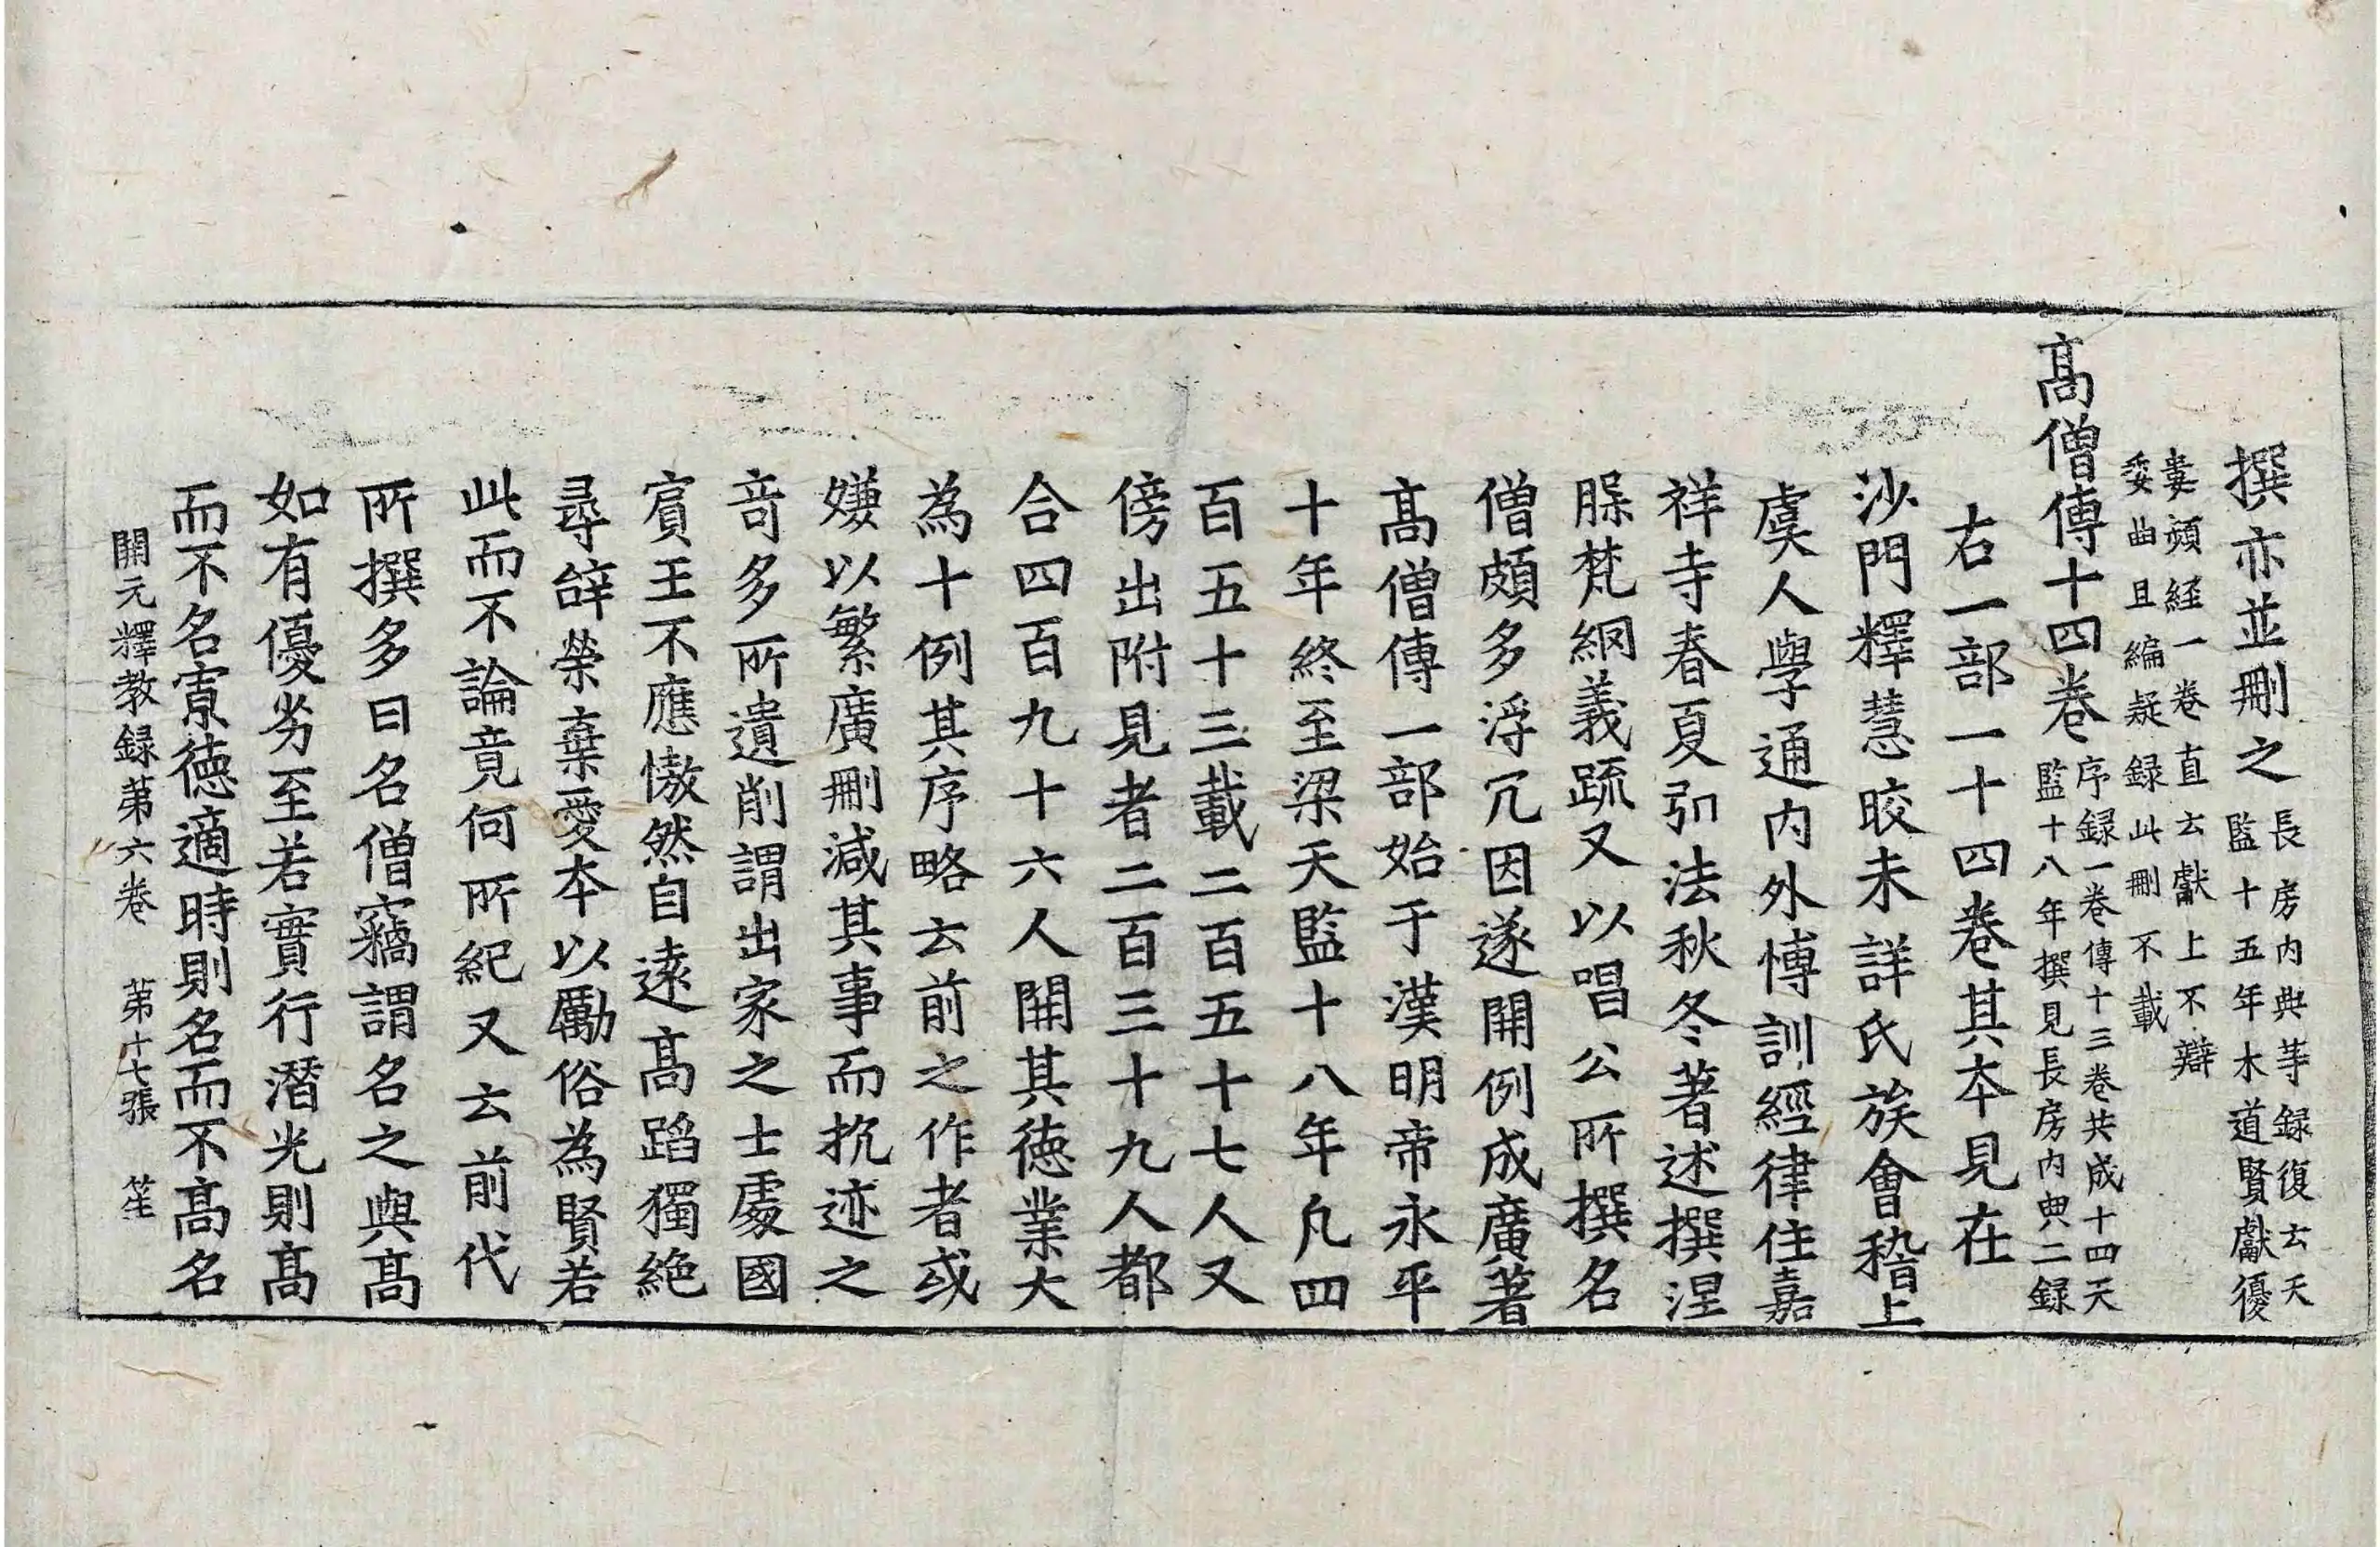 撰亦並刪之長房內典等録復云天
監十五年木道賢獻優
婁頻経一卷直云獻上不辯
委曲且編疑録此刪不載
髙僧傳十四卷序録一卷傳十三卷共成十四天
監十八年撰見長房內典二録
右一部一十四卷其夲見在
沙門釋慧皎未詳氏族會稽上
虞人學通內外博訓經律住嘉
祥寺春夏弘法秋冬著述撰涅
槃梵網義䟽又以唱公所撰名
僧頗多浮冗因遂開例成廣著
髙僧傳一部始于漢明帝永平
十年終至梁天監十八年凡四
百五十三載二百五十七人又
傍出附見者二百三十九人都
合四百九十六人開其徳業大
為十例其序略云前之作者或
嫌以繁廣刪減其事而抗迹之
竒多所遺削謂出家之士處國
賔王不應慠然自遠髙蹈獨絶
尋辝榮棄愛夲以勵俗為賢若
此而不論竟何所紀又云前代
所撰多曰名僧竊謂名之與髙
如有優劣至若實行潛光則髙
而不名寡徳適時則名而不髙名
開元釋教録第六卷 第十七張 笙